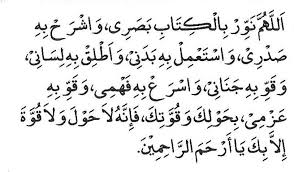 اَللّٰهُمَّ نَوِّرْ بِالْكِتَابِ بَصَرِى، وَاشْرَحْ بِهِ
صَدْرِى، وَاسْتَعْمِلْ بِهِ بَدَنِىْ، وَاَطْلِقْ بِهِ لِسَانِىْ،
وَقَوِّ بِهِ جَنَانِىْ، وَاَسْرِعْ بِهِ فَهْمِىْ، وَقَوِّ بِهِ
عَزْمِىْ، بِحَوْلِكَ وَقُوَّتِكَ، فَاِنَّهُ لَا حَوْلَ وَلَا قُوَّةَ
اِلَّا بِكَ يَا اَرْحَمَ الرَّاحِمِيْنَ.